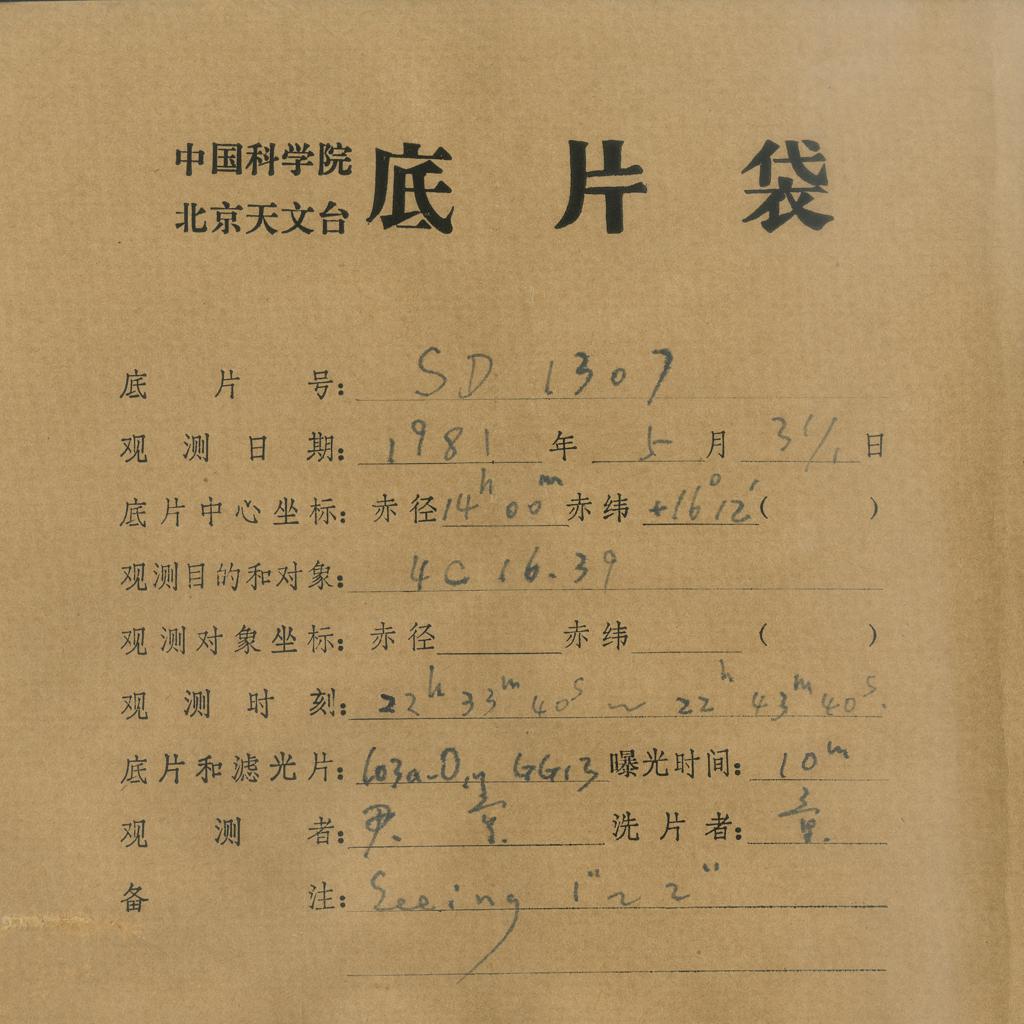 中国科学院
北京天文台
底片袋
底片号: SD 1307
观测日期: 1981 年 5 月 31/1 日
底片中心坐标: 赤径 14h 00m 赤纬 +16°12′ ( )
观测目的和对象: 4C 16.39
观测对象坐标: 赤径 赤纬 ( )
观测时刻: 22h 33m 40s ~ 22h 43m 40s.
底片和滤光片: 103a-O, GG13 曝光时间: 10m
观测者: 尹. 洗片者:
备注: Seeing 1" ~ 2"